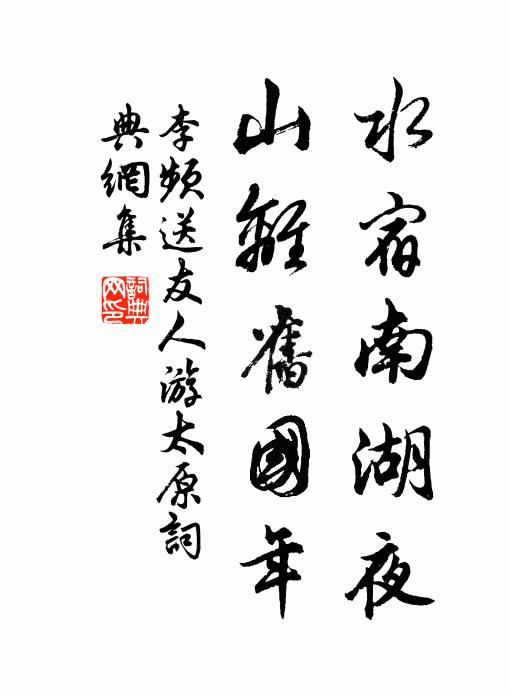 水宿南湖夜
山離舊國年
李頻送友人游太原詞
典網集
詞典
网印